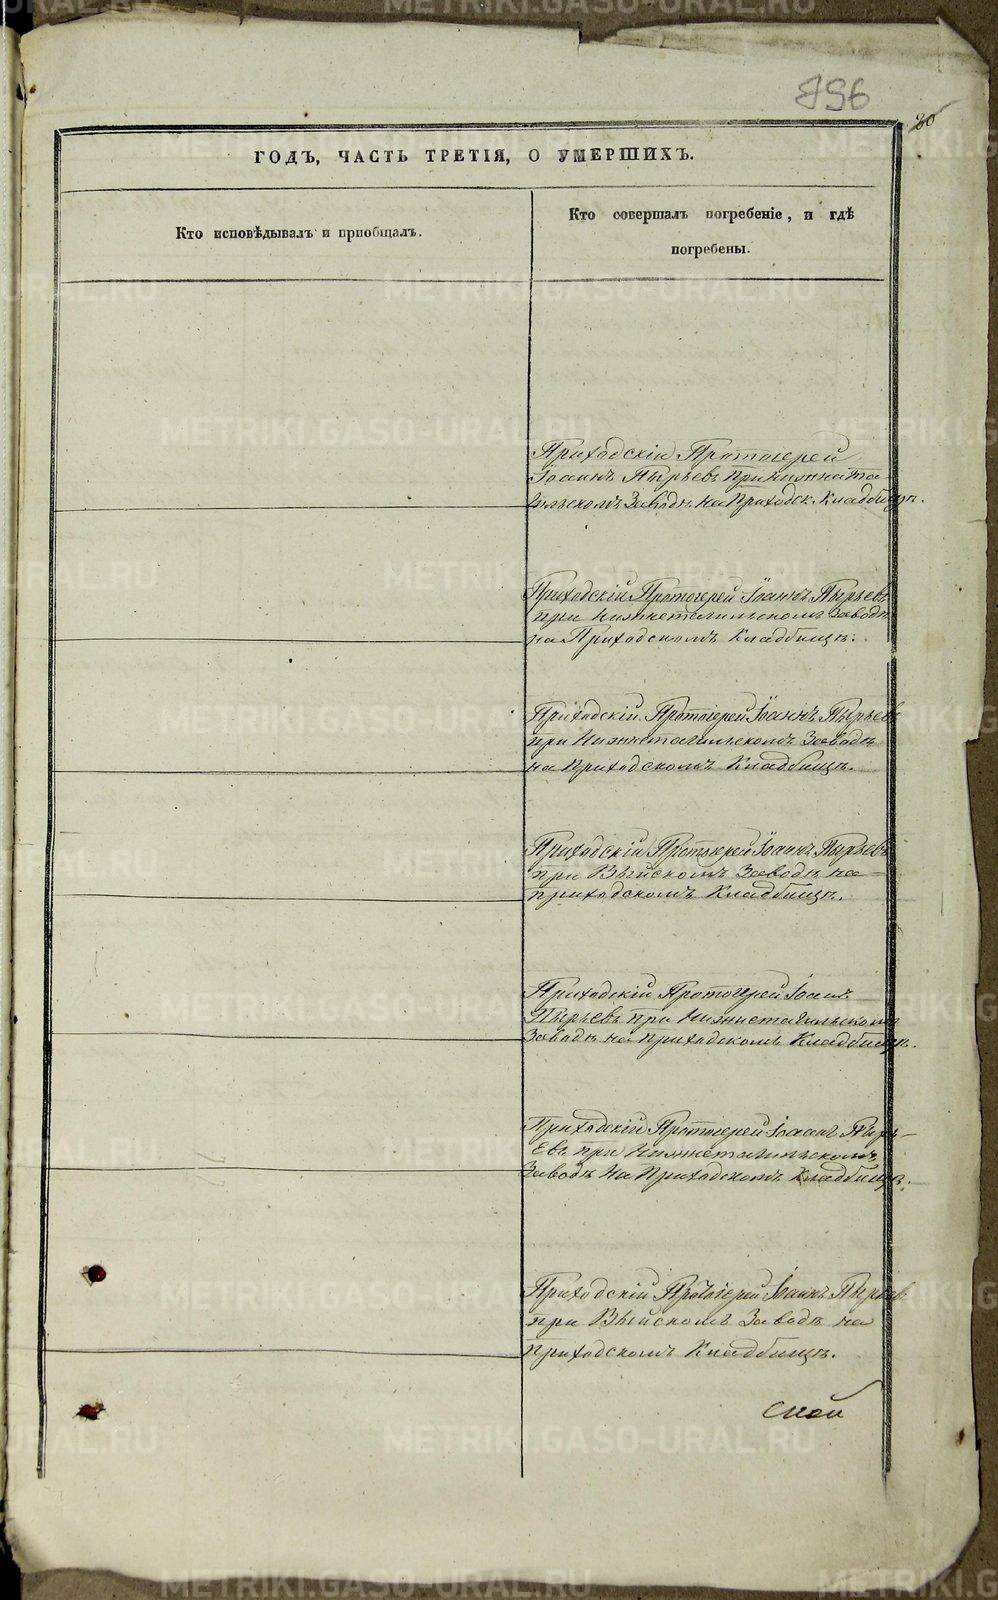 796
80
ГОДЪ, ЧАСТЬ ТРЕТІЯ, О УМЕРШИХЪ.
Кто исповѣдывалъ и пріобщалъ.
Кто совершалъ погребеніе, и гдѣ
погребены.
Приходскій Протоіерей
Іоаннъ Пырьевъ При Нижнета-
гильскомъ Заводѣ на Приходск. Кладбищѣ.
Приходскій Протоіерей Іоаннъ Пырьевъ
при Нижнетагильскомъ Заводѣ
на Приходскомъ Кладбищѣ.
Приходскій Протоіерей Іоаннъ Пырьевъ
при Нижнетагильскомъ Заводѣ
на Приходскомъ Кладбищѣ.
Приходскій Протоіерей Іоаннъ Пырьевъ
при Выйскомъ Заводѣ на
приходскомъ Кладбищѣ.
Приходскій Протоіерей Іоаннъ
Пырьевъ при Нижнетагильскомъ
Заводѣ на приходскомъ Кладбищѣ.
Приходскій Протоіерей Іоаннъ Пырь-
евъ при Нижнетагильскомъ
Заводѣ на Приходскомъ Кладбищѣ.
Приходскій Протоіерей Іоаннъ Пырьевъ
при Выйскомъ Заводѣ на
Приходскомъ Кладбищѣ.
ской
METRIKI.GASO-URAL.RU